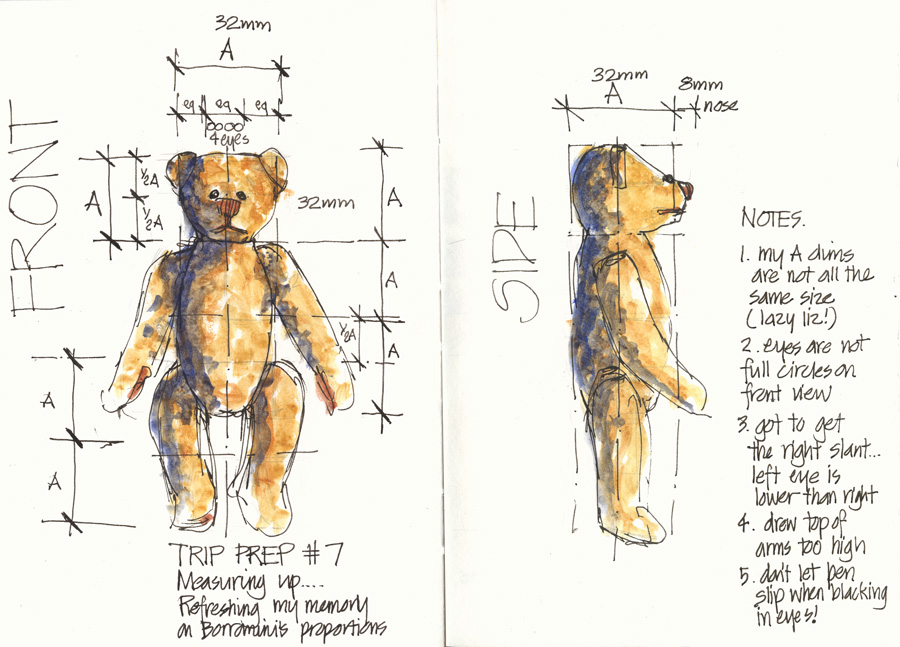 FRONT
32mm
A
eq eq eq
0000
4 eyes
A
½A
½A
32mm
A
A
½A
A
A
A
TRIP PREP #7
Measuring up....
Refreshing my memory
on Borromini's proportions
SIDE
32mm
A
8mm
nose
NOTES.
1. my A dims
are not all the
same size
(lazy liz!)
2. eyes are not
full circles on
front view
3. got to get
the right slant...
left eye is
lower than right
4. draw top of
arms too high
5. don't let pen
slip when blacking
in eyes!